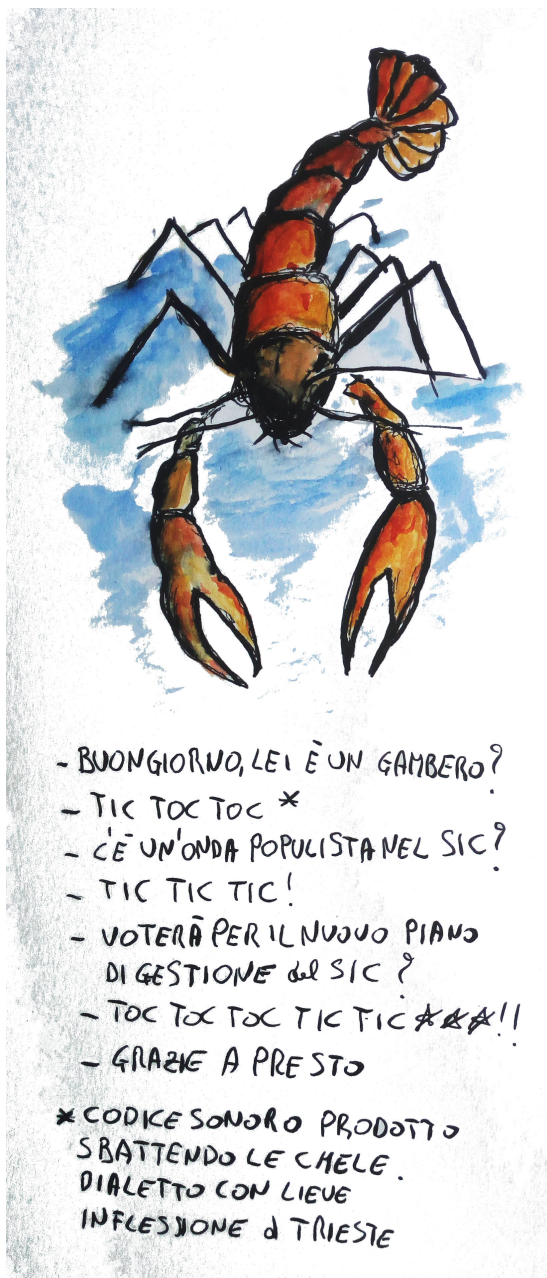 - BUONGIORNO, LEI È UN GAMBERO?
- TIC TOC TOC *
- C'È UN'ONDA POPULISTA NEL SIC?
- TIC TIC TIC!
- VOTERÀ PER IL NUOVO PIANO
DI GESTIONE del SIC?
- TOC TOC TOC TIC TIC ***!!
- GRAZIE A PRESTO
* CODICE SONORO PRODOTTO
SBATTENDO LE CHELE.
DIALETTO CON LIEVE
INFLESSIONE d TRIESTE